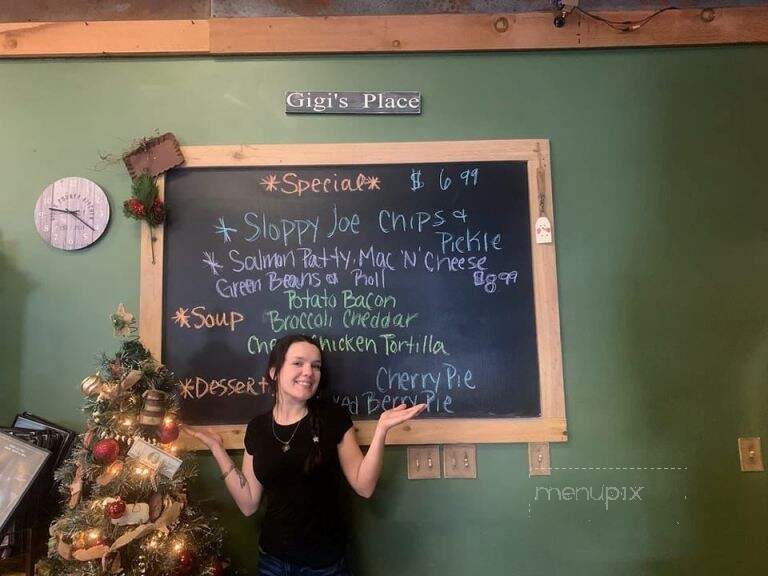 Gigi's Place
*Special* $ 6 99
* Sloppy Joe Chips &
Pickle
* Salmon Patty, Mac 'N' Cheese
Green Beans & Roll $8.99
Potato Bacon
*Soup Broccoli Cheddar
Chicken Tortilla
*Dessert Cherry Pie
Berry Pie
menupix